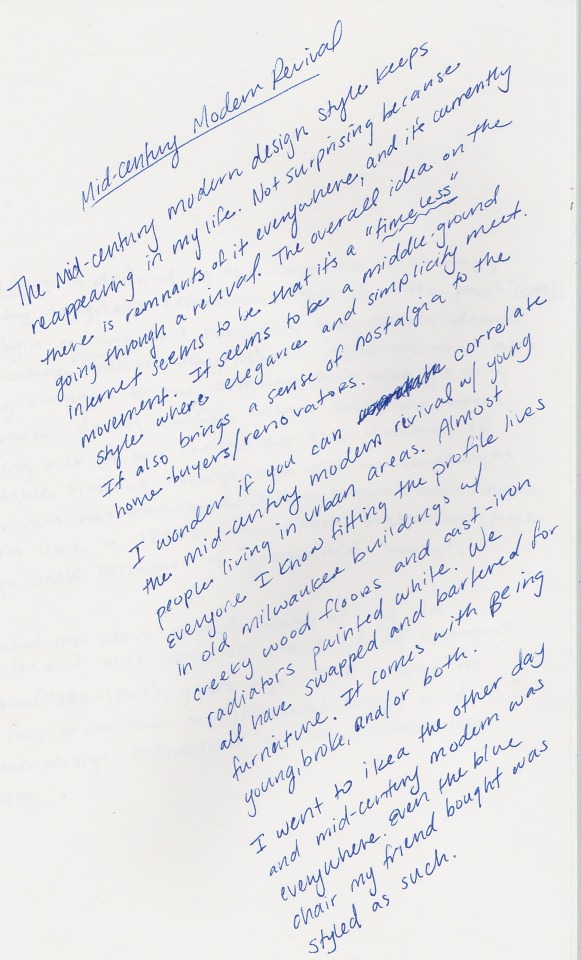 Mid-century Modern Revival
The mid-century modern design style keeps
reappearing in my life. Not surprising because
there is remnants of it everywhere, and it's currently
going through a revival. The overall idea on the
internet seems to be that it's a "timeless"
movement. It seems to be a middle-ground
style where elegance and simplicity meet.
It also brings a sense of nostalgia to the
home-buyers/renovators.
I wonder if you can correlate
the mid-century modern revival w/ young
people living in urban areas. Almost
everyone I know fitting the profile lives
in old milwaukee buildings w/
creeky wood floors and cast-iron
radiators painted white. We
all have swapped and bartered for
furniture. It comes with being
young, broke, and/or both.
I went to ikea the other day
and mid-century modern was
everywhere. Even the blue
chair my friend bought was
styled as such.